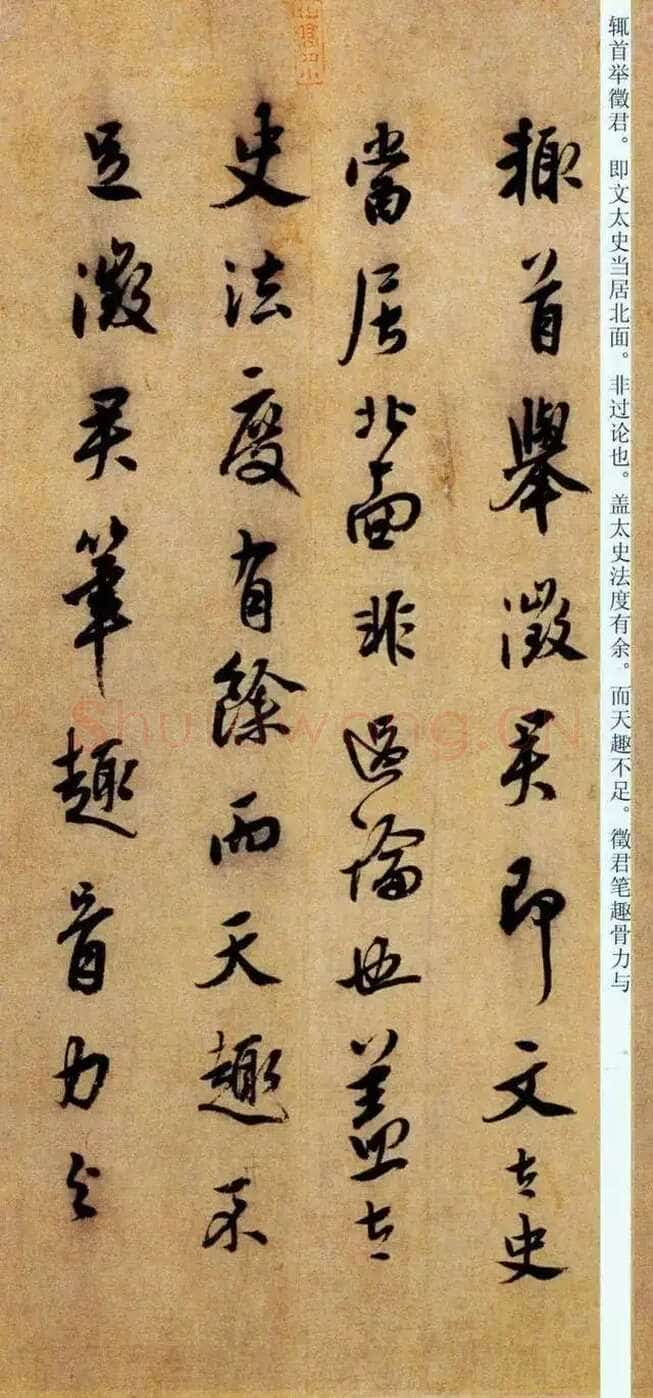 辄首举徵君。即文太史当居北面。非过论也。盖太史法度有余。而天趣不足。徵君笔趣骨力与
輙首舉徵君即文太史
當居北面非過論也蓋太
史法度有餘而天趣不
足徵君筆趣骨力与
Shufawang.CN